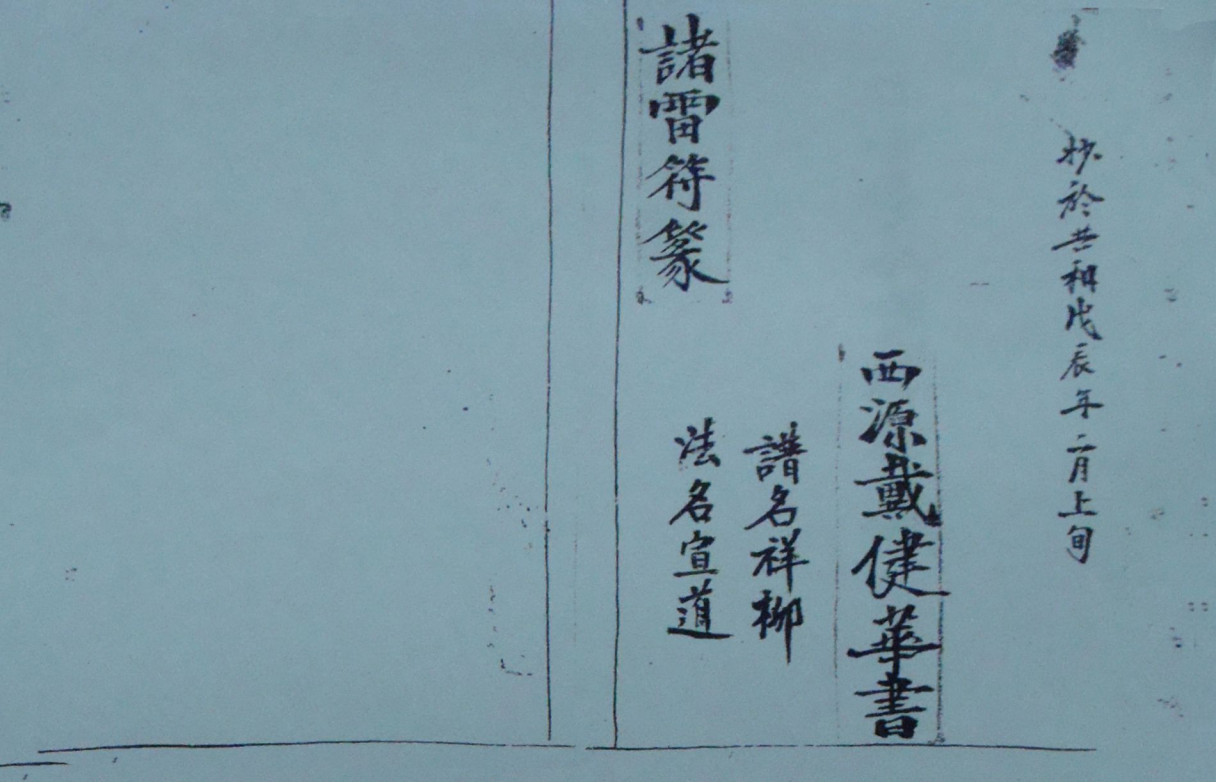 抄於共和戊辰年二月上旬
西源戴健華書
譜名祥柳
法名宣道
諸雷符篆